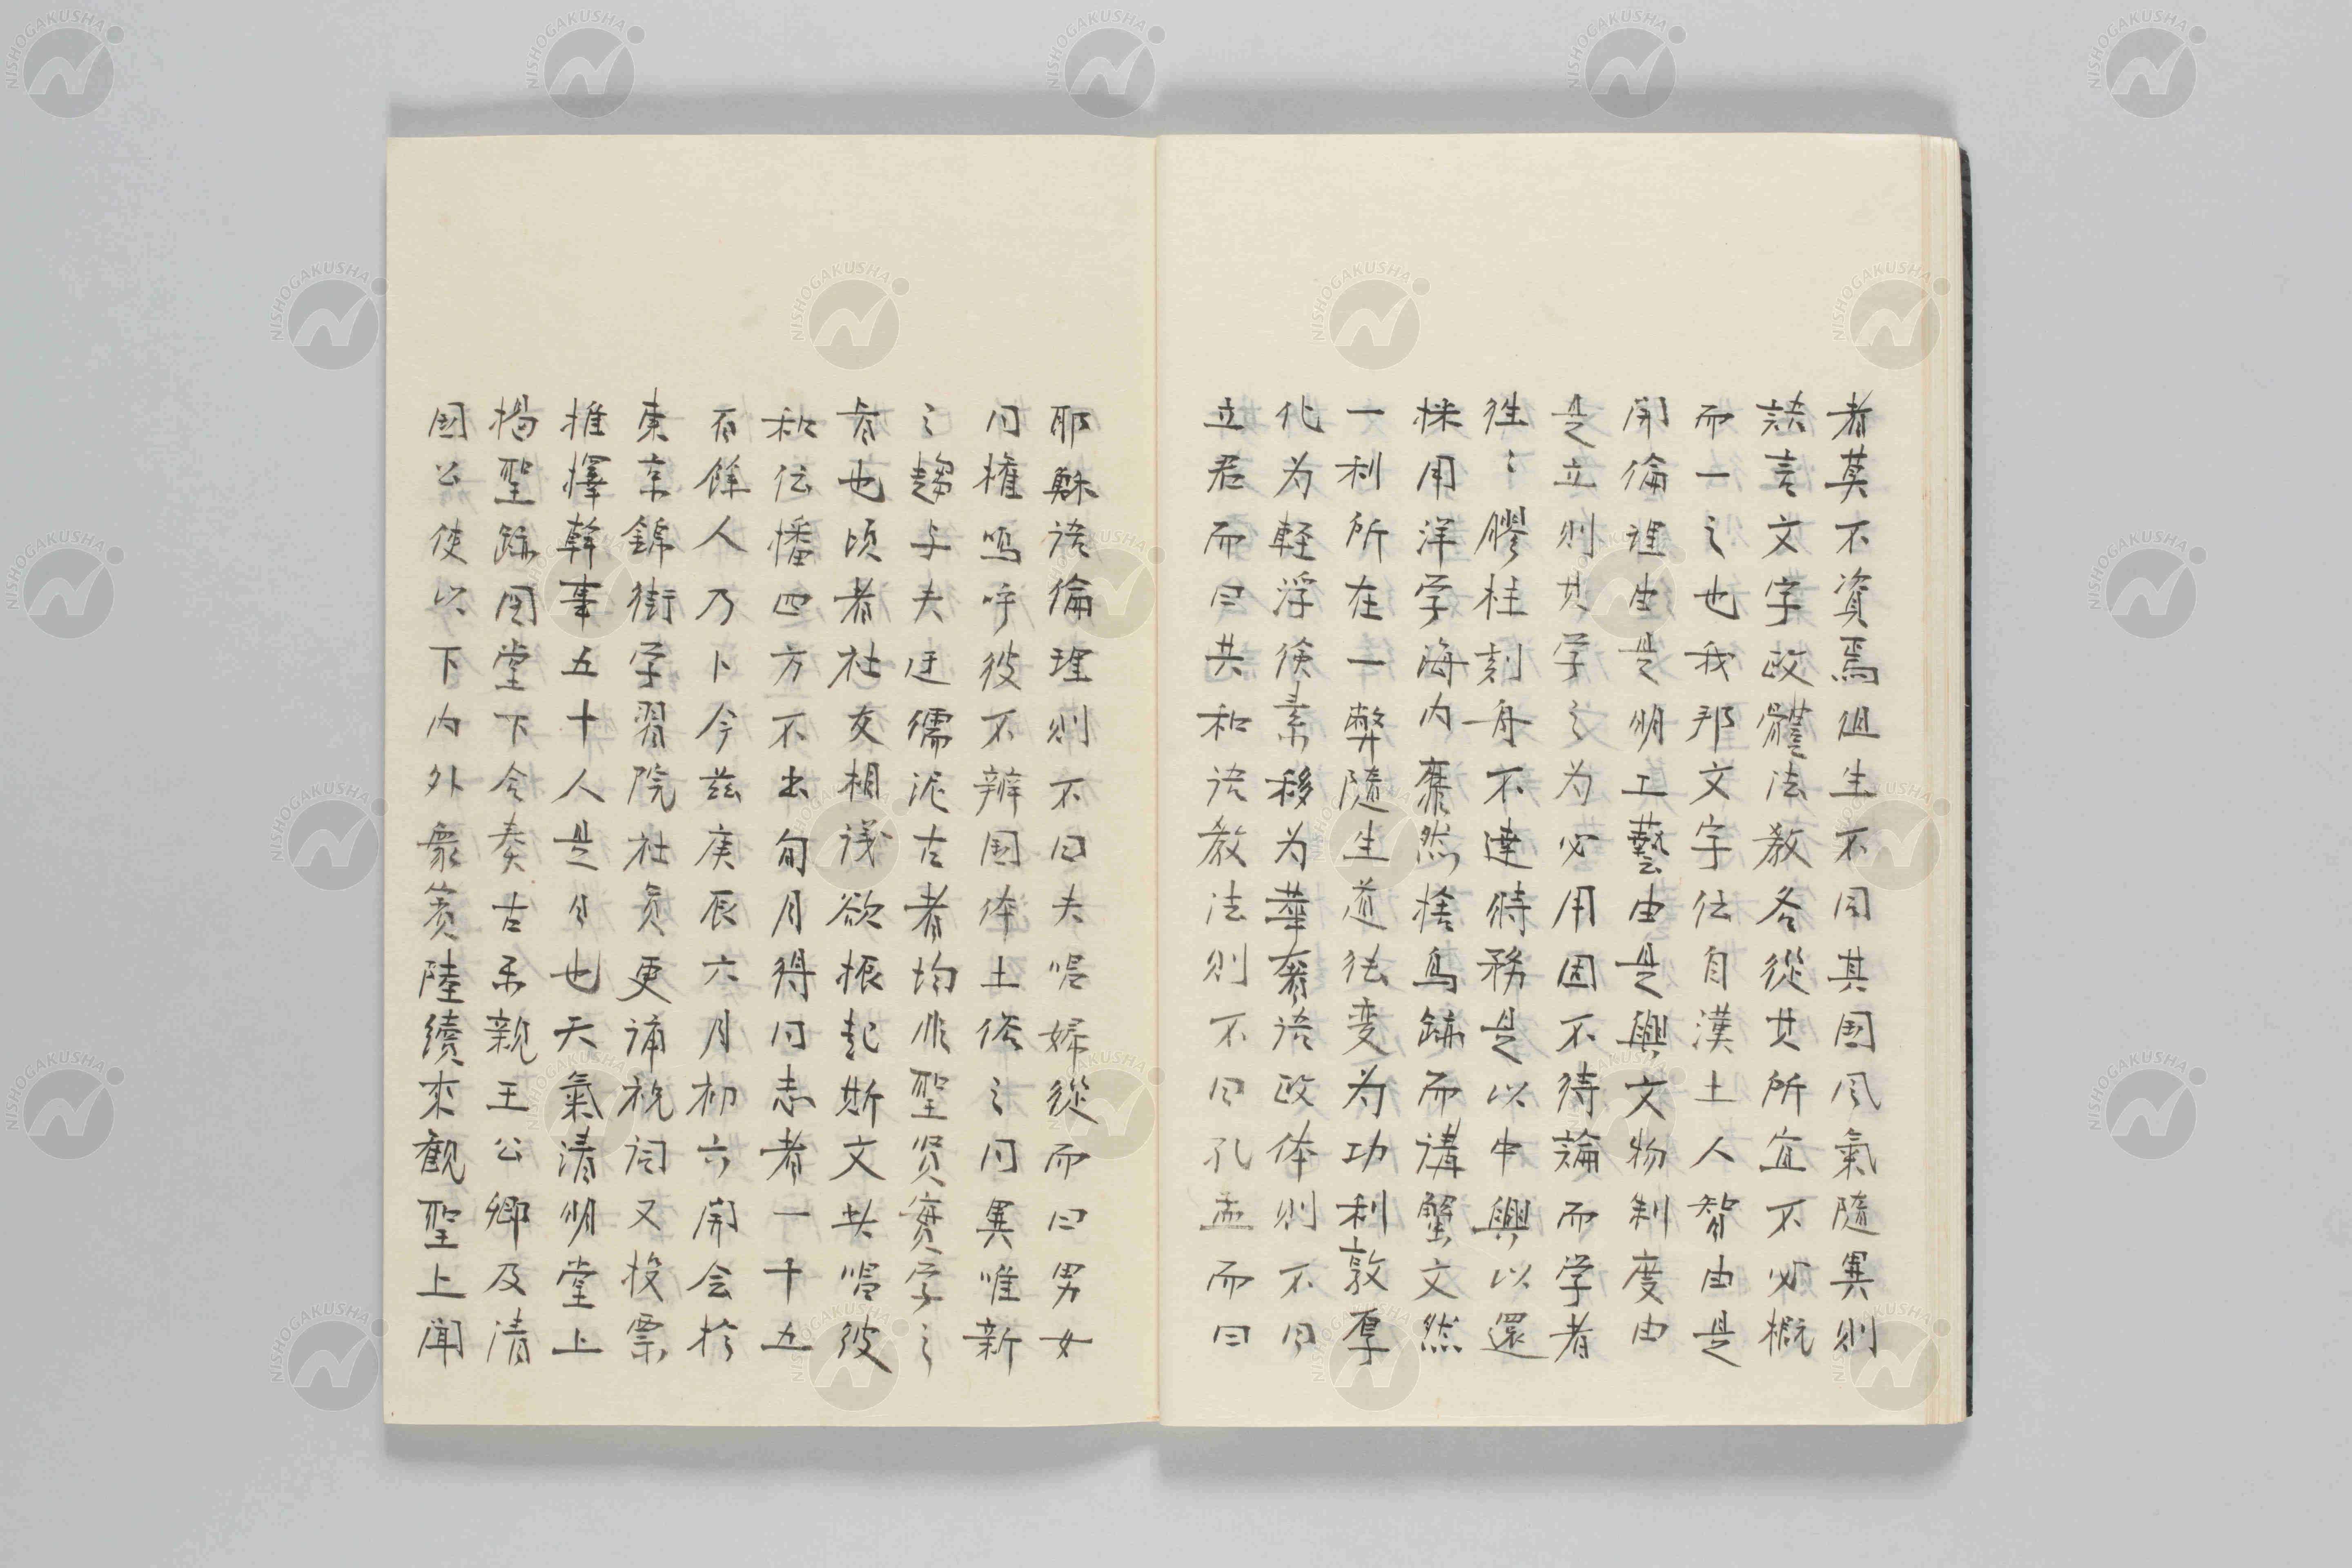 者莫不資焉但生不同其国風氣隨異則
訣言文字政體法教各從其所宜不必概
而一之也我邦文字伝自漢土人智由是
開倫理由是明工藝由是興文物制度由
是立則其学之为必用固不待論而学者
往〻膠柱刻舟不達時務是以中興以還
採用洋学海内靡然捨鳥跡而講蟹文然
一利所在一弊隨生道徳変为功利敦厚
化为軽浮倹素移为華奢語政体則不曰
立君而曰共和語教法則不曰孔孟而曰
耶穌語倫理則不曰夫唱婦從而曰男女
同権嗚呼彼不辨国体土俗之同異唯新
之趨与夫迂儒泥古者均非聖贤實学之
者也頃者社友相議欲振起斯文共唱彼
秋伝播四方不出旬月得同志者一千五
百餘人乃卜今茲庚辰六月初六開会於
東京錦街学習院社員更誦祝詞又投票
推擇幹事五十人是日也天氣清明堂上
揭聖跡图堂下令奏古楽親王公卿及清
国公使以下内外衆賓陸續來観聖上聞